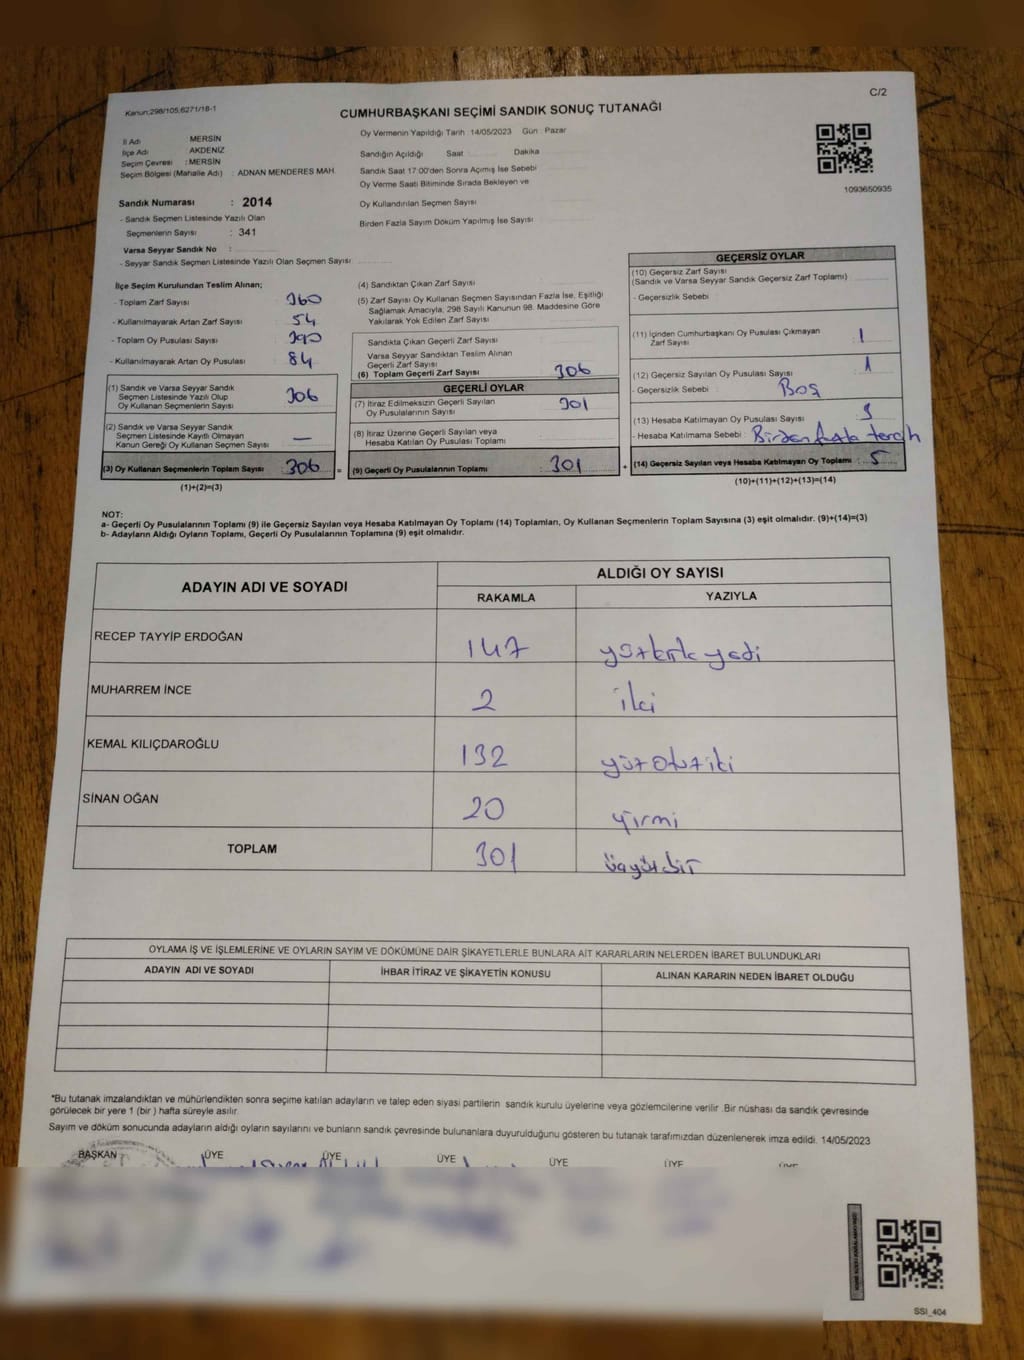 Kanun:298/105,6271/18-1
C/2
CUMHURBAŞKANI SEÇİMİ SANDIK SONUÇ TUTANAĞI
İl Adı MERSİN
İlçe Adı AKDENİZ
Seçim Çevresi : MERSİN
Seçim Bölgesi (Mahalle Adı) : ADNAN MENDERES MAH.
Sandık Numarası : 2014
- Sandık Seçmen Listesinde Yazılı Olan
Seçmenlerin Sayısı : 341
Varsa Seyyar Sandık No :
- Seyyar Sandık Seçmen Listesinde Yazılı Olan Seçmen Sayısı:
Oy Vermenin Yapıldığı Tarih 14/05/2023 Gün : Pazar
Sandığın Açıldığı Saat Dakika
Sandık Saat 17:00'den Sonra Açımış İse Sebebi
Oy Verme Saati Bitiminde Sırada Bekleyen ve
Oy Kullandırılan Seçmen Sayısı
Birden Fazla Sayım Döküm Yapılmış İse Sayısı
1093650935
İlçe Seçim Kurulundan Teslim Alınan;
- Toplam Zarf Sayısı 360
- Kullanılmayarak Artan Zarf Sayısı 54
- Toplam Oy Pusulası Sayısı 390
- Kullanılmayarak Artan Oy Pusulası 84
(1) Sandık ve Varsa Seyyar Sandık
Seçmen Listesinde Yazılı Olup
Oy Kullanan Seçmenlerin Sayısı 306
(2) Sandık ve Varsa Seyyar Sandık
Seçmen Listesinde Kayıtlı Olmayan
Kanun Gereği Oy Kullanan Seçmen Sayısı —
(3) Oy Kullanan Seçmenlerin Toplam Sayısı : 306 =
(1)+(2)=(3)
(4) Sandıktan Çıkan Zarf Sayısı
(5) Zarf Sayısı Oy Kullanan Seçmen Sayısından Fazla İse, Eşitliği
Sağlamak Amacıyla, 298 Sayılı Kanunun 98. Maddesine Göre
Yakılarak Yok Edilen Zarf Sayısı
Sandıkta Çıkan Geçerli Zarf Sayısı
Varsa Seyyar Sandıktan Teslim Alınan
Geçerli Zarf Sayısı
(6) Toplam Geçerli Zarf Sayısı 306
GEÇERLİ OYLAR
(7) İtiraz Edilmeksizin Geçerli Sayılan
Oy Pusulalarının Sayısı 301
(8) İtiraz Üzerine Geçerli Sayılan veya
Hesaba Katılan Oy Pusulası Toplamı
(9) Geçerli Oy Pusulalarının Toplamı : 301 +
GEÇERSİZ OYLAR
(10) Geçersiz Zarf Sayısı
(Sandık ve Varsa Seyyar Sandık Geçersiz Zarf Toplamı)
- Geçersizlik Sebebi
(11) İçinden Cumhurbaşkanı Oy Pusulası Çıkmayan
Zarf Sayısı 1
(12) Geçersiz Sayılan Oy Pusulası Sayısı 1
- Geçersizlik Sebebi : Boş
(13) Hesaba Katılmayan Oy Pusulası Sayısı 3
- Hesaba Katılmama Sebebi : Birden fazla tercih
(14) Geçersiz Sayılan veya Hesaba Katılmayan Oy Toplamı : 5
(10)+(11)+(12)+(13)=(14)
NOT:
a- Geçerli Oy Pusulalarının Toplamı (9) ile Geçersiz Sayılan veya Hesaba Katılmayan Oy Toplamı (14) Toplamları, Oy Kullanan Seçmenlerin Toplam Sayısına (3) eşit olmalıdır. (9)+(14)=(3)
b- Adayların Aldığı Oyların Toplamı, Geçerli Oy Pusulalarının Toplamına (9) eşit olmalıdır.
ADAYIN ADI VE SOYADI ALDIĞI OY SAYISI
RAKAMLA YAZIYLA
RECEP TAYYİP ERDOĞAN 147 yüzkırkyedi
MUHARREM İNCE 2 iki
KEMAL KILIÇDAROĞLU 132 yüzotuziki
SİNAN OĞAN 20 yirmi
TOPLAM 301 üçyüzbir
OYLAMA İŞ VE İŞLEMLERİNE VE OYLARIN SAYIM VE DÖKÜMÜNE DAİR ŞİKAYETLERLE BUNLARA AİT KARARLARIN NELERDEN İBARET BULUNDUKLARI
ADAYIN ADI VE SOYADI İHBAR İTİRAZ VE ŞİKAYETİN KONUSU ALINAN KARARIN NEDEN İBARET OLDUĞU
*Bu tutanak imzalandıktan ve mühürlendikten sonra seçime katılan adayların ve talep eden siyasi partilerin sandık kurulu üyelerine veya gözlemcilerine verilir .Bir nüshası da sandık çevresinde
görülecek bir yere 1 (bir ) hafta süreyle asılır.
Sayım ve döküm sonucunda adayların aldığı oyların sayılarını ve bunların sandık çevresinde bulunanlara duyurulduğunu gösteren bu tutanak tarafımızdan düzenlenerek imza edildi. 14/05/2023
BAŞKAN ÜYE ÜYE ÜYE ÜYE ÜYE ÜYE
SSI_404